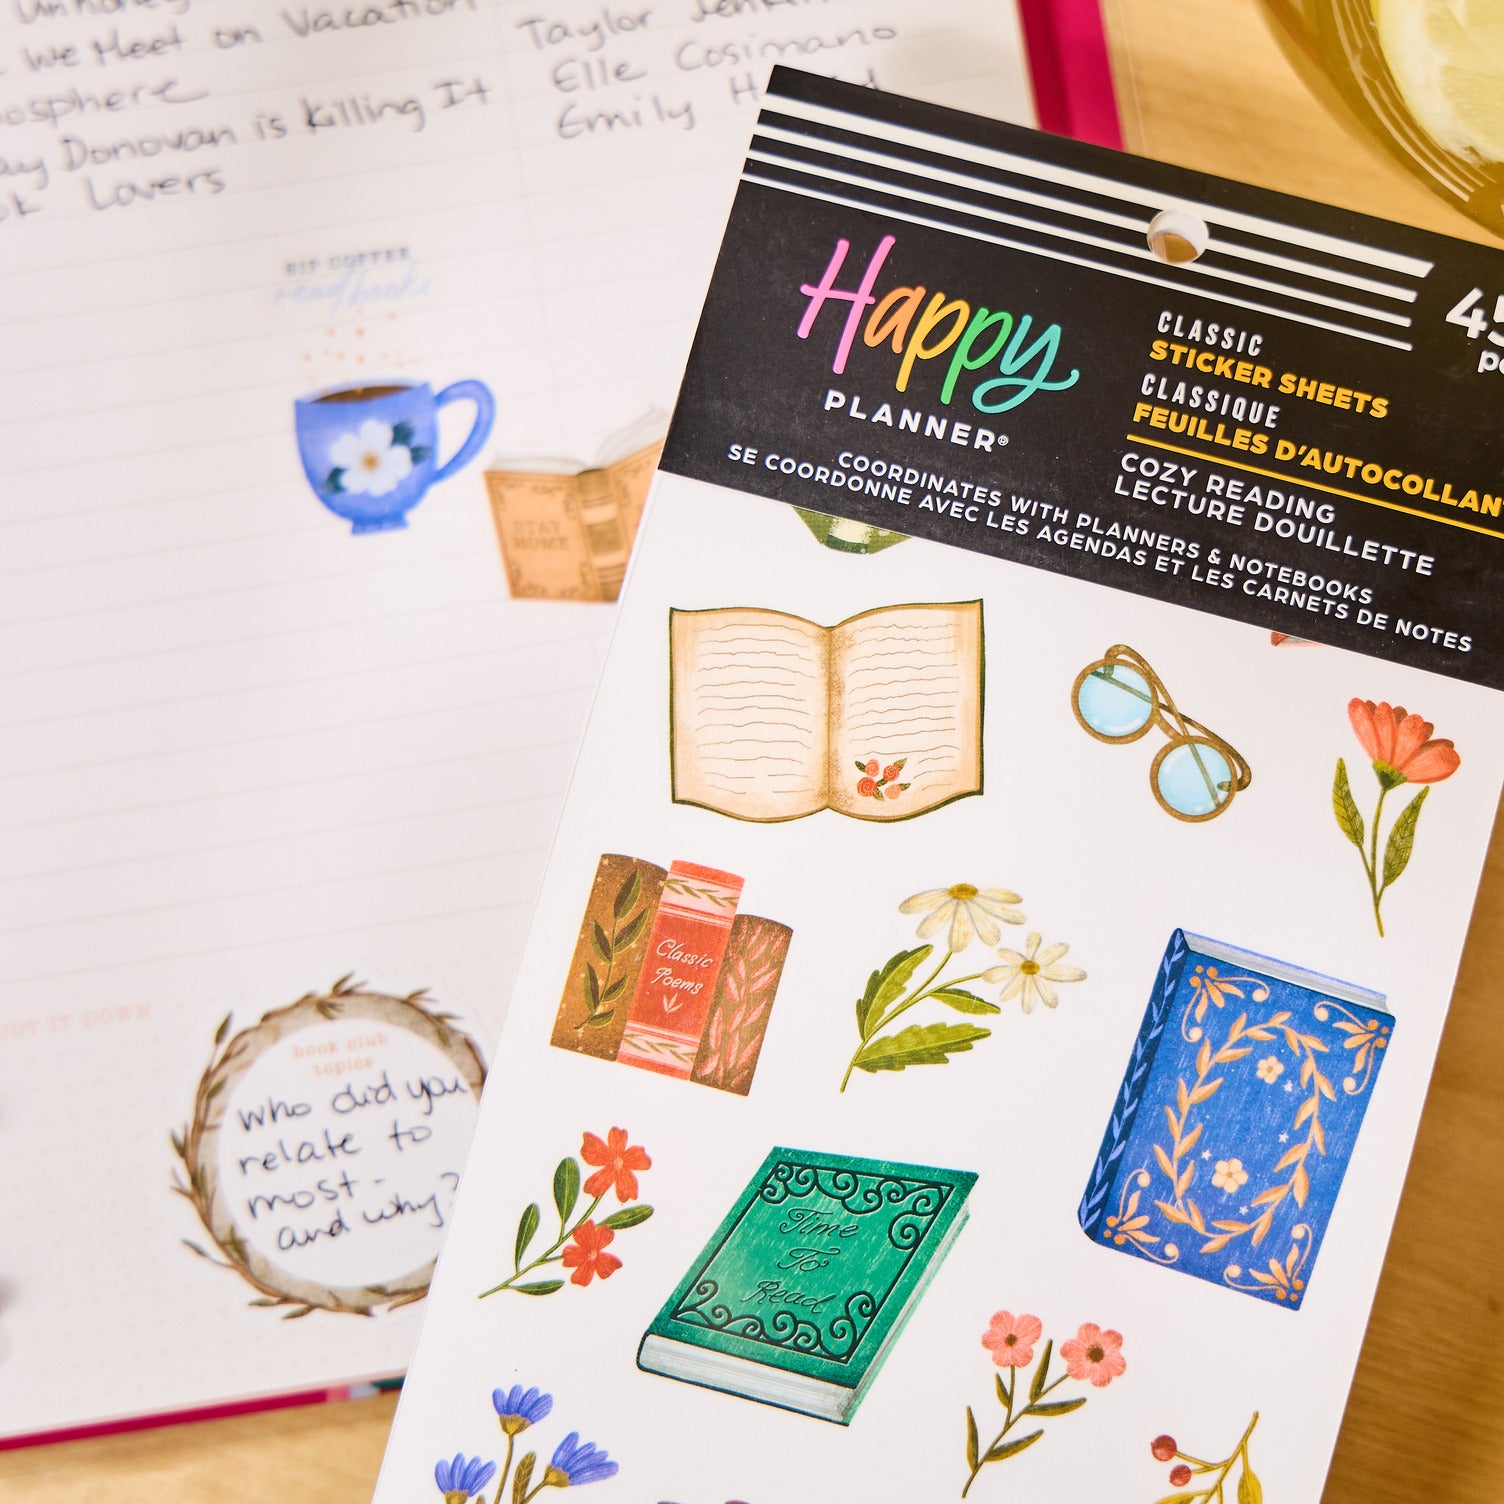 We Meet on Vacation
Taylor
Elle Cosimano
Donovan is Killing It
Emily
Lovers
SIP COFFEE
read books
STAY
HOME
IT DOWN
book club
topics
who did you
relate to
most-
and why?
Happy
PLANNER®
CLASSIC
STICKER SHEETS
CLASSIQUE
FEUILLES D'AUTOCOLLAN
COZY READING
LECTURE DOUILLETTE
COORDINATES WITH PLANNERS & NOTEBOOKS
SE COORDONNE AVEC LES AGENDAS ET LES CARNETS DE NOTES
Classic
Poems
Time
To
Read